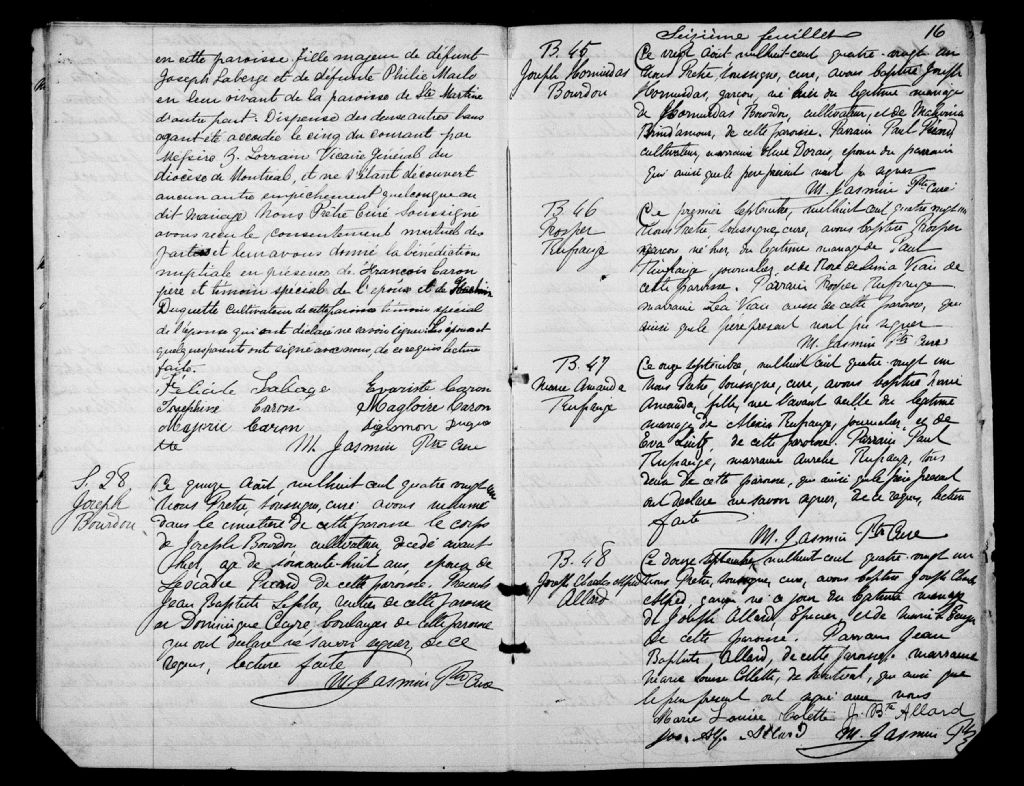 en cette paroisse fille majeur de défunt
Joseph Laberge et de défunte Philie Mailo
en leur vivant de la paroisse de Ste Martine
d'autre part. Dispense des deux autres bans
ayant été accordée le cinq du courant par
Messire Z. Lorrain Vicaire Général du
diocèse de Montréal, et ne s'étant découvert
aucun autre empêchement quelconque au
dit mariage Nous Prêtre Curé Soussigné
avons reçu le consentement mutuel des
parties et leur avons donné la bénédiction
nuptiale en présence de François Caron
père et témoin spécial de l'époux et de
Duquette Cultivateur de cette paroisse témoin spécial
de l'épouse qui ont déclaré ne savoir signer Les époux et
quelques parent ont signé avec nous, de ce requis lecture
faite.
Félicité Laberge Evariste Caron
Josephine Caron Magloire Caron
Marjorie Caron Salomon Duque
tte M. Jasmin Ptre Curé
S. 28
Joseph
Bourdon
Ce quinze Août mil huit cent quatre vingt un
Nous Pretre, soussigné, curé avons inhumé
dans le cimetière de cette paroisse le corps
de Joseph Bourdon cultivateur decedé avant
hier, agé de soixante huit ans, epoux de
Leocadie Picard de cette paroisse. Presents
Jean Baptiste Leplu, rentier de cette paroisse
et Dominique Cayre boulanger de cette paroisse
qui ont declare ne savoir signer, de ce
requis, lecture faite
M. Jasmin Ptre Curé
Seizième feuillet 16
B. 45
Joseph Hormisdas
Bourdon
Ce vingt Août mil huit cent quatre-vingt un
Nous Pretre soussigné, curé, avons baptisé Joseph
Hormisdas, garçon, né hier du legitime mariage
de Hormisdas Bourdon, cultivateur, et de Malvina
Brindamour, de cette paroisse. Parrain Paul Picard
cultivateur, marraine Olive Dorais, epouse du parrain
qui ainsi que le pere present n'ont pu signer
M. Jasmin Ptre Curé
B. 46
Prosper
Rufiange
Ce premier Septembre, mil huit cent quatre vingt un
Nous Pretre soussigné, curé, avons baptisé Prosper
garçon né hier, du legitime mariage de Paul
Rufiange, journalier, et de Rose de Lima Viau de
cette paroisse. Parrain Prosper Rufiange
marraine Lea Viau aussi de cette paroisse, qui
ainsi que le pere present n'ont pu signer
M. Jasmin Ptre Curé
B. 47
Marie Amanda
Rufiange
Ce onze Septembre, mil huit cent quatre vingt un
Nous Pretre, soussigné, curé, avons baptisé Marie
Amanda, fille, née l'avant veille du legitime
mariage de Alexis Rufiange, journalier, et de
Eva de cette paroisse. Parrain Paul
Rufiange, marraine Aurelie Rufiange, tous
deux de cette paroisse, qui ainsi que le pere present
ont declaré ne savoir signer, de ce requis, lecture
faite
M. Jasmin Ptre Curé
B. 48
Joseph Charles Alfred
Allard
Ce douze Septembre mil huit cent quatre-vingt un
Nous Pretre, soussigné, curé, avons baptisé Joseph Charles
Alfred, garçon né ce jour du legitime mariage
de Joseph Allard, Epicier, et de Marie L.
de cette paroisse. Parrain Jean
Baptiste Allard, de cette paroisse, marraine
Marie Louise Collette, de Montreal, qui ainsi que
le pere present ont signé avec nous
Marie Louise Colette J. Bte Allard
Jos. Alf. Allard M. Jasmin Ptre